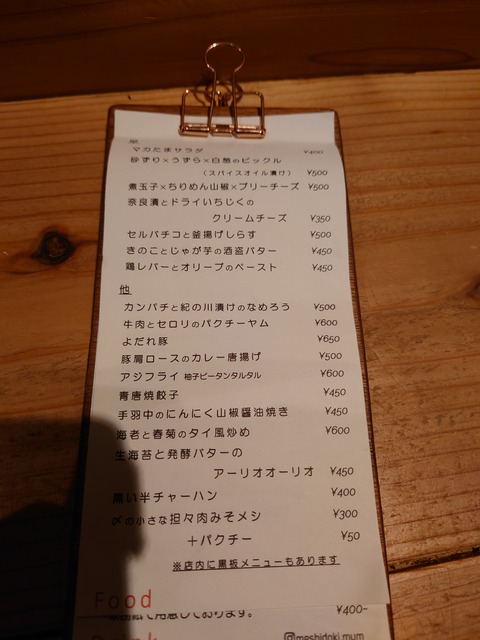 マカたまサラダ ¥400
砂ずり×うずら×白葱のピックル
(スパイスオイル漬け) ¥500
煮玉子×ちりめん山椒×ブリーチーズ ¥500
奈良漬とドライいちじくの
クリームチーズ ¥350
セルバチコと釜揚げしらす ¥500
きのことじゃが芋の酒盗バター ¥450
鶏レバーとオリーブのペースト ¥450
他
カンパチと紀の川漬けのなめろう ¥500
牛肉とセロリのパクチーヤム ¥600
よだれ豚 ¥650
豚肩ロースのカレー唐揚げ ¥500
アジフライ 柚子ピータンタルタル ¥600
青唐焼餃子 ¥450
手羽中のにんにく山椒醤油焼き ¥450
海老と春菊のタイ風炒め ¥600
生海苔と発酵バターの
アーリオオーリオ ¥450
黒い半チャーハン ¥400
〆の小さな担々肉みそメシ ¥300
+パクチー ¥50
※店内に黒板メニューもあります
Food
で用意しております。 ¥400~
@meshidoki.mum